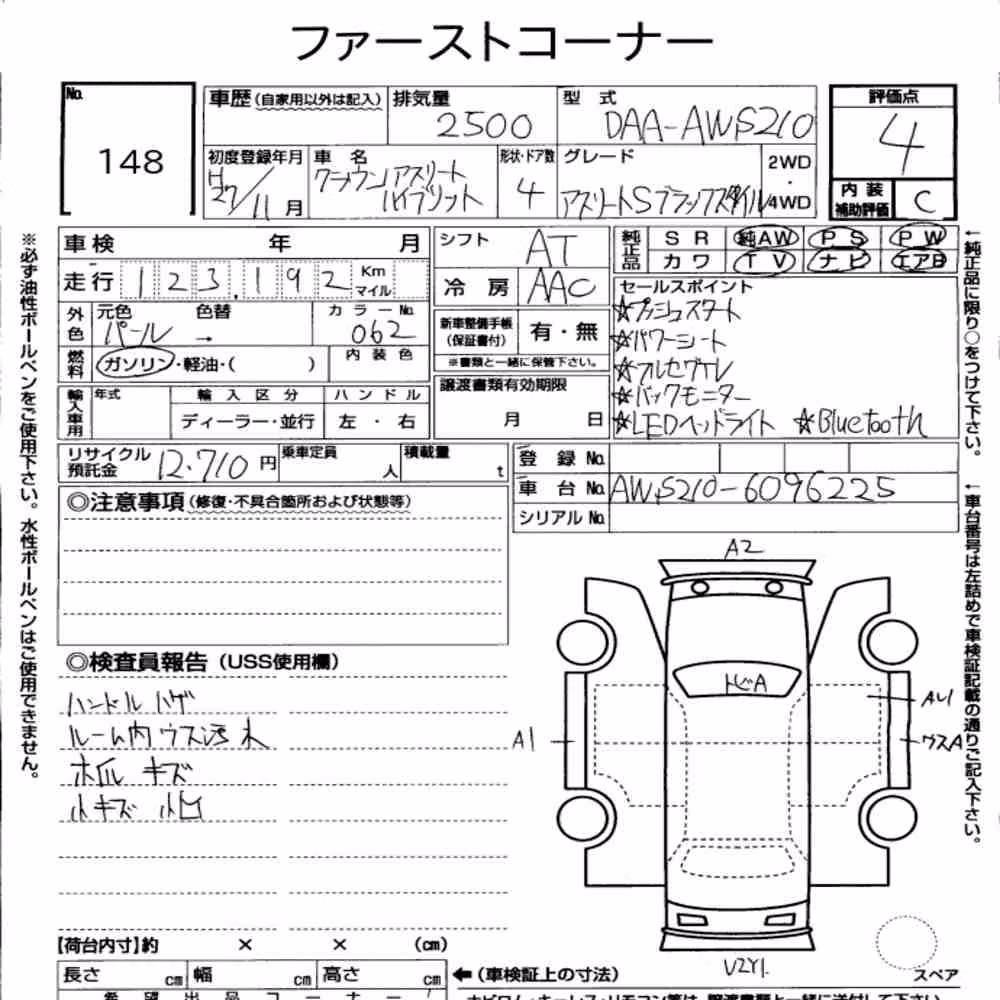 ファーストコーナー
No.
148
車歴 (自家用以外は記入)
排気量
2500
型 式
DAA-AWS210
評価点
4
初度登録年月
H27/11月
車 名
クラウンアスリート
ハイブリット
形状・ドア数
4
グレード
アスリートSブラックスタイル
2WD
・
4WD
内 装
補助評価
C
車 検 年 月
シフト
AT
純正品
S R 純AW P S P W
カワ T V ナビ エアB
走 行 123,192 Km マイル
冷 房
AAC
セールスポイント
☆プッシュスタート
☆パワーシート
☆アルセヴェル
☆バックモニター
☆LEDヘッドライト ☆Bluetooth
外色
元色 色替
パール →
カラーNo.
062
新車整備手帳
(保証書付)
有・無
※書類と一緒に保管下さい。
燃料
ガソリン・軽油・( )
内 装 色
輸入車用
年式
輸 入 区 分
ディーラー・並行
ハ ン ド ル
左 ・ 右
譲渡書類有効期限
月 日
リサイクル
預託金
12,710円
乗車定員
人
積載量
t
登 録 No.
車 台 No. AWS210-6096225
シリアル No.
◎注意事項 (修復・不具合箇所および状態等)
◎検査員報告 (USS使用欄)
ハンドル ハゲ
ルーム内 ウス汚れ
ホイル キズ
小キズ 小凹
A2
トビA
A1
AU1
ウスA
V2Y1
スペア
【荷台内寸】約 × × (cm)
長さ cm 幅 cm 高さ cm
←(車検証上の寸法)
希 望 出 品 コ ー ナ ー
※必ず油性ボールペンをご使用下さい。水性ボールペンはご使用できません。
←純正品に限り○をつけて下さい。
←車台番号は左詰めで車検証記載の通りご記入下さい。